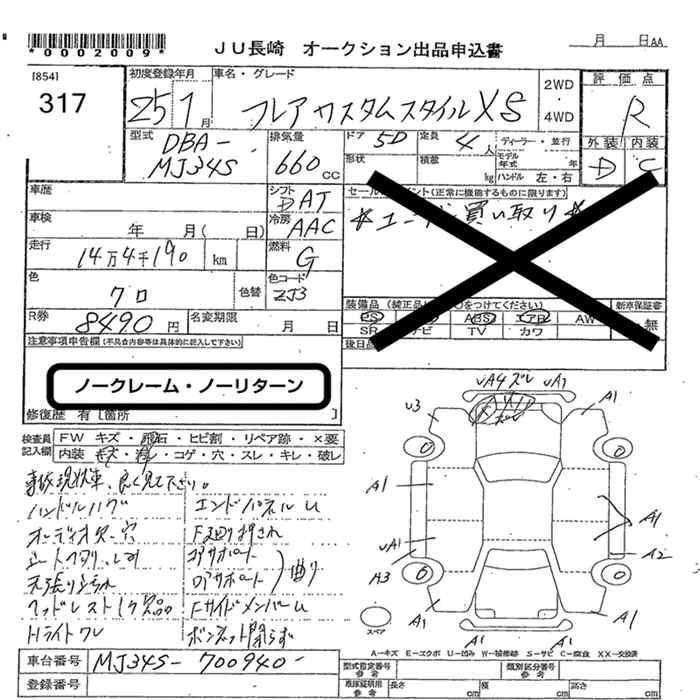 *0002009*
JU長崎 オークション出品申込書
月 日AA
[854]
317
初度登録年月
25 1月
車名・グレード
フレアカスタムスタイルXS
2WD
・
4WD
評価点
R
外装 内装
D C
型式
DBA-
MJ34S
排気量
660 CC
ドア 5D
定員 4人
ディーラー・並行
形状
積載 kg
モデル年式 年
ハンドル 左・右
車歴
シフト
DAT
セールスポイント(正常に機能するものに限ります)
☆ユーザー買い取り☆
車検
年 月( 日)
冷房
AAC
走行
14万4千190 km
燃料
G
色
クロ
色替
色コード
ZJ3
装備品(純正品に○をつけてください)
新車保証書
PS ABS エアB AW
SR ナビ TV カワ
無
R券
8490円
名変期限
月 日
後日品
注意事項申告欄(不具合内容等は具体的に記入して下さい)
ノークレーム・ノーリターン
修復歴 有[箇所 ]
検査員記入欄
FW キズ・飛石・ヒビ割・リペア跡・×要
内装 キズ・汚れ・コゲ・穴・スレ・キレ・破レ
事故現状車、良く見て下さい。
ハンドルハゲ
エンドパネルU
オーディオ欠・穴
F廻り押され
シートヘタリ、シミ
コアサポート
天張りよごれ
ロアサポート
曲り
ヘッドレスト1ケ欠品
FサイドメンバーU
Hライトワレ
ボンネット閉らず
UA4 ズレ UA1
U3
ズレ
A1
A1
UA1
A3
A1
A2
A1
A1
A1
A1
スペア
A-キズ E-エクボ U-凹み W-補修跡 S-サビ C-腐食 XX-交換済
車台番号
MJ34S-700940
登録番号
型式指定番号
参考
類別区分番号
参考
車庫証明用
参考
長さ cm
幅 cm
高さ cm